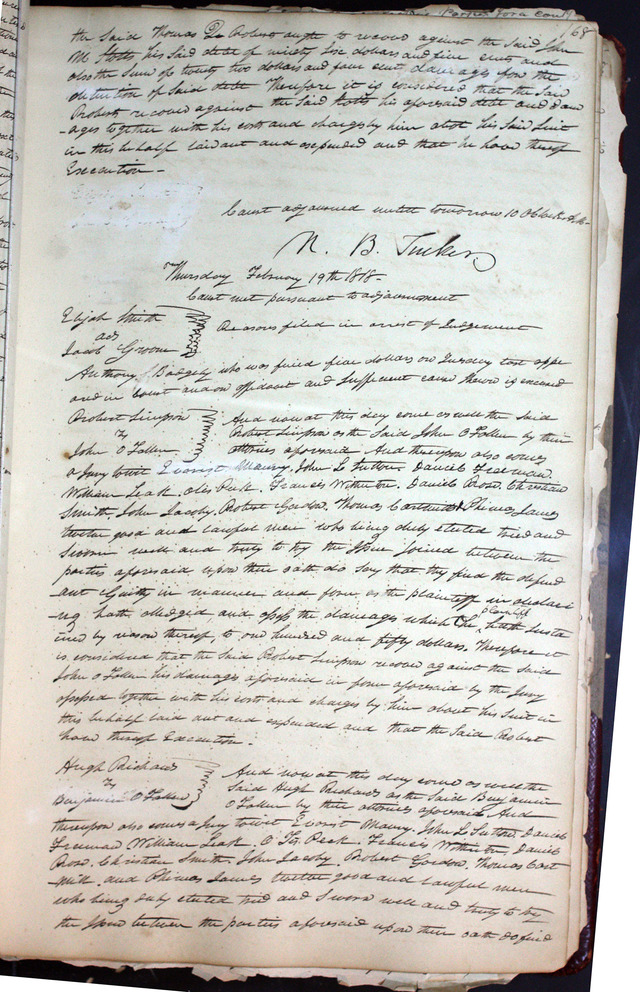 68
the Said Thomas De Robert ought to recover against the Said John
Stotts his Said debt of ninety five dollars and five cents and
also the Sum of twenty two dollars and four cents damages for the
detention of Said debt Therefore it is considered that the Said
Robert recover against the Said Stotts his aforesaid debt and dam
-ages together with his costs and charges by him about his Said Suit
in this behalf laid out and expended and that he have thereof
Execution -
Court adjourned untill tomorrow 10 OClock
N. B. Tucker
Thursday February 19th 1818 -
Court met pursuant to adjournment
Elijah Smith
ads
Jacob Groom
Reasons filed in arrest of Judgement
Anthony Badgely who was fined five dollars on Tuesday last appe
ared in Court and on affidavit and Sufficient cause shown is excused
Robert Simpson
vs
John O Fallen
And now at this day come as well the Said
Robert Simpson as the Said John O Fallen by their
attornies aforesaid And thereupon also comes
a Jury towit Evarist Maury, John L Sutton, Daniel Freeman,
William Leak, Peck, Francis Daniel Bross, Christian
Smith, John Jacoby, Robert Gordon, Thomas Cartmill & Phineas James
twelve good and lawful men who being duly elected tried and
Sworn well and truly to try the Issue Joined between the
parties aforesaid upon their oath do Say that they find the defend
ant Guilty in manner and form as the plaintiff in declari
-ng hath alledged, and assess the damages which the plaintiff hath Susta
ined by reason thereof, to one hundred and fifty dollars. Therefore it
is considered that the Said Robert Simpson recover against the Said
John O Fallen his damages aforesaid in form aforesaid by the Jury
assessed together with his costs and charges by him about his Suit in
this behalf laid out and expended and that the Said Robert
have thereof Execution -
Hugh Richards
vs
Benjamin O Fallen
And now at this day come as well the
Said Hugh Richards as the Said Benjamin
O Fallen by their attornies aforesaid And
thereupon also comes a Jury towit Evarist Maury, John L Sutton, Daniel
Freeman William Leak, Peck Francis Daniel
Bross, Christian Smith, John Jacoby Robert Gordon, Thomas Cart
-mill, and Phineas James twelve good and Lawful men
who being duly elected tried and Sworn well and truly to try
the Issue between the parties aforesaid upon their oath do find